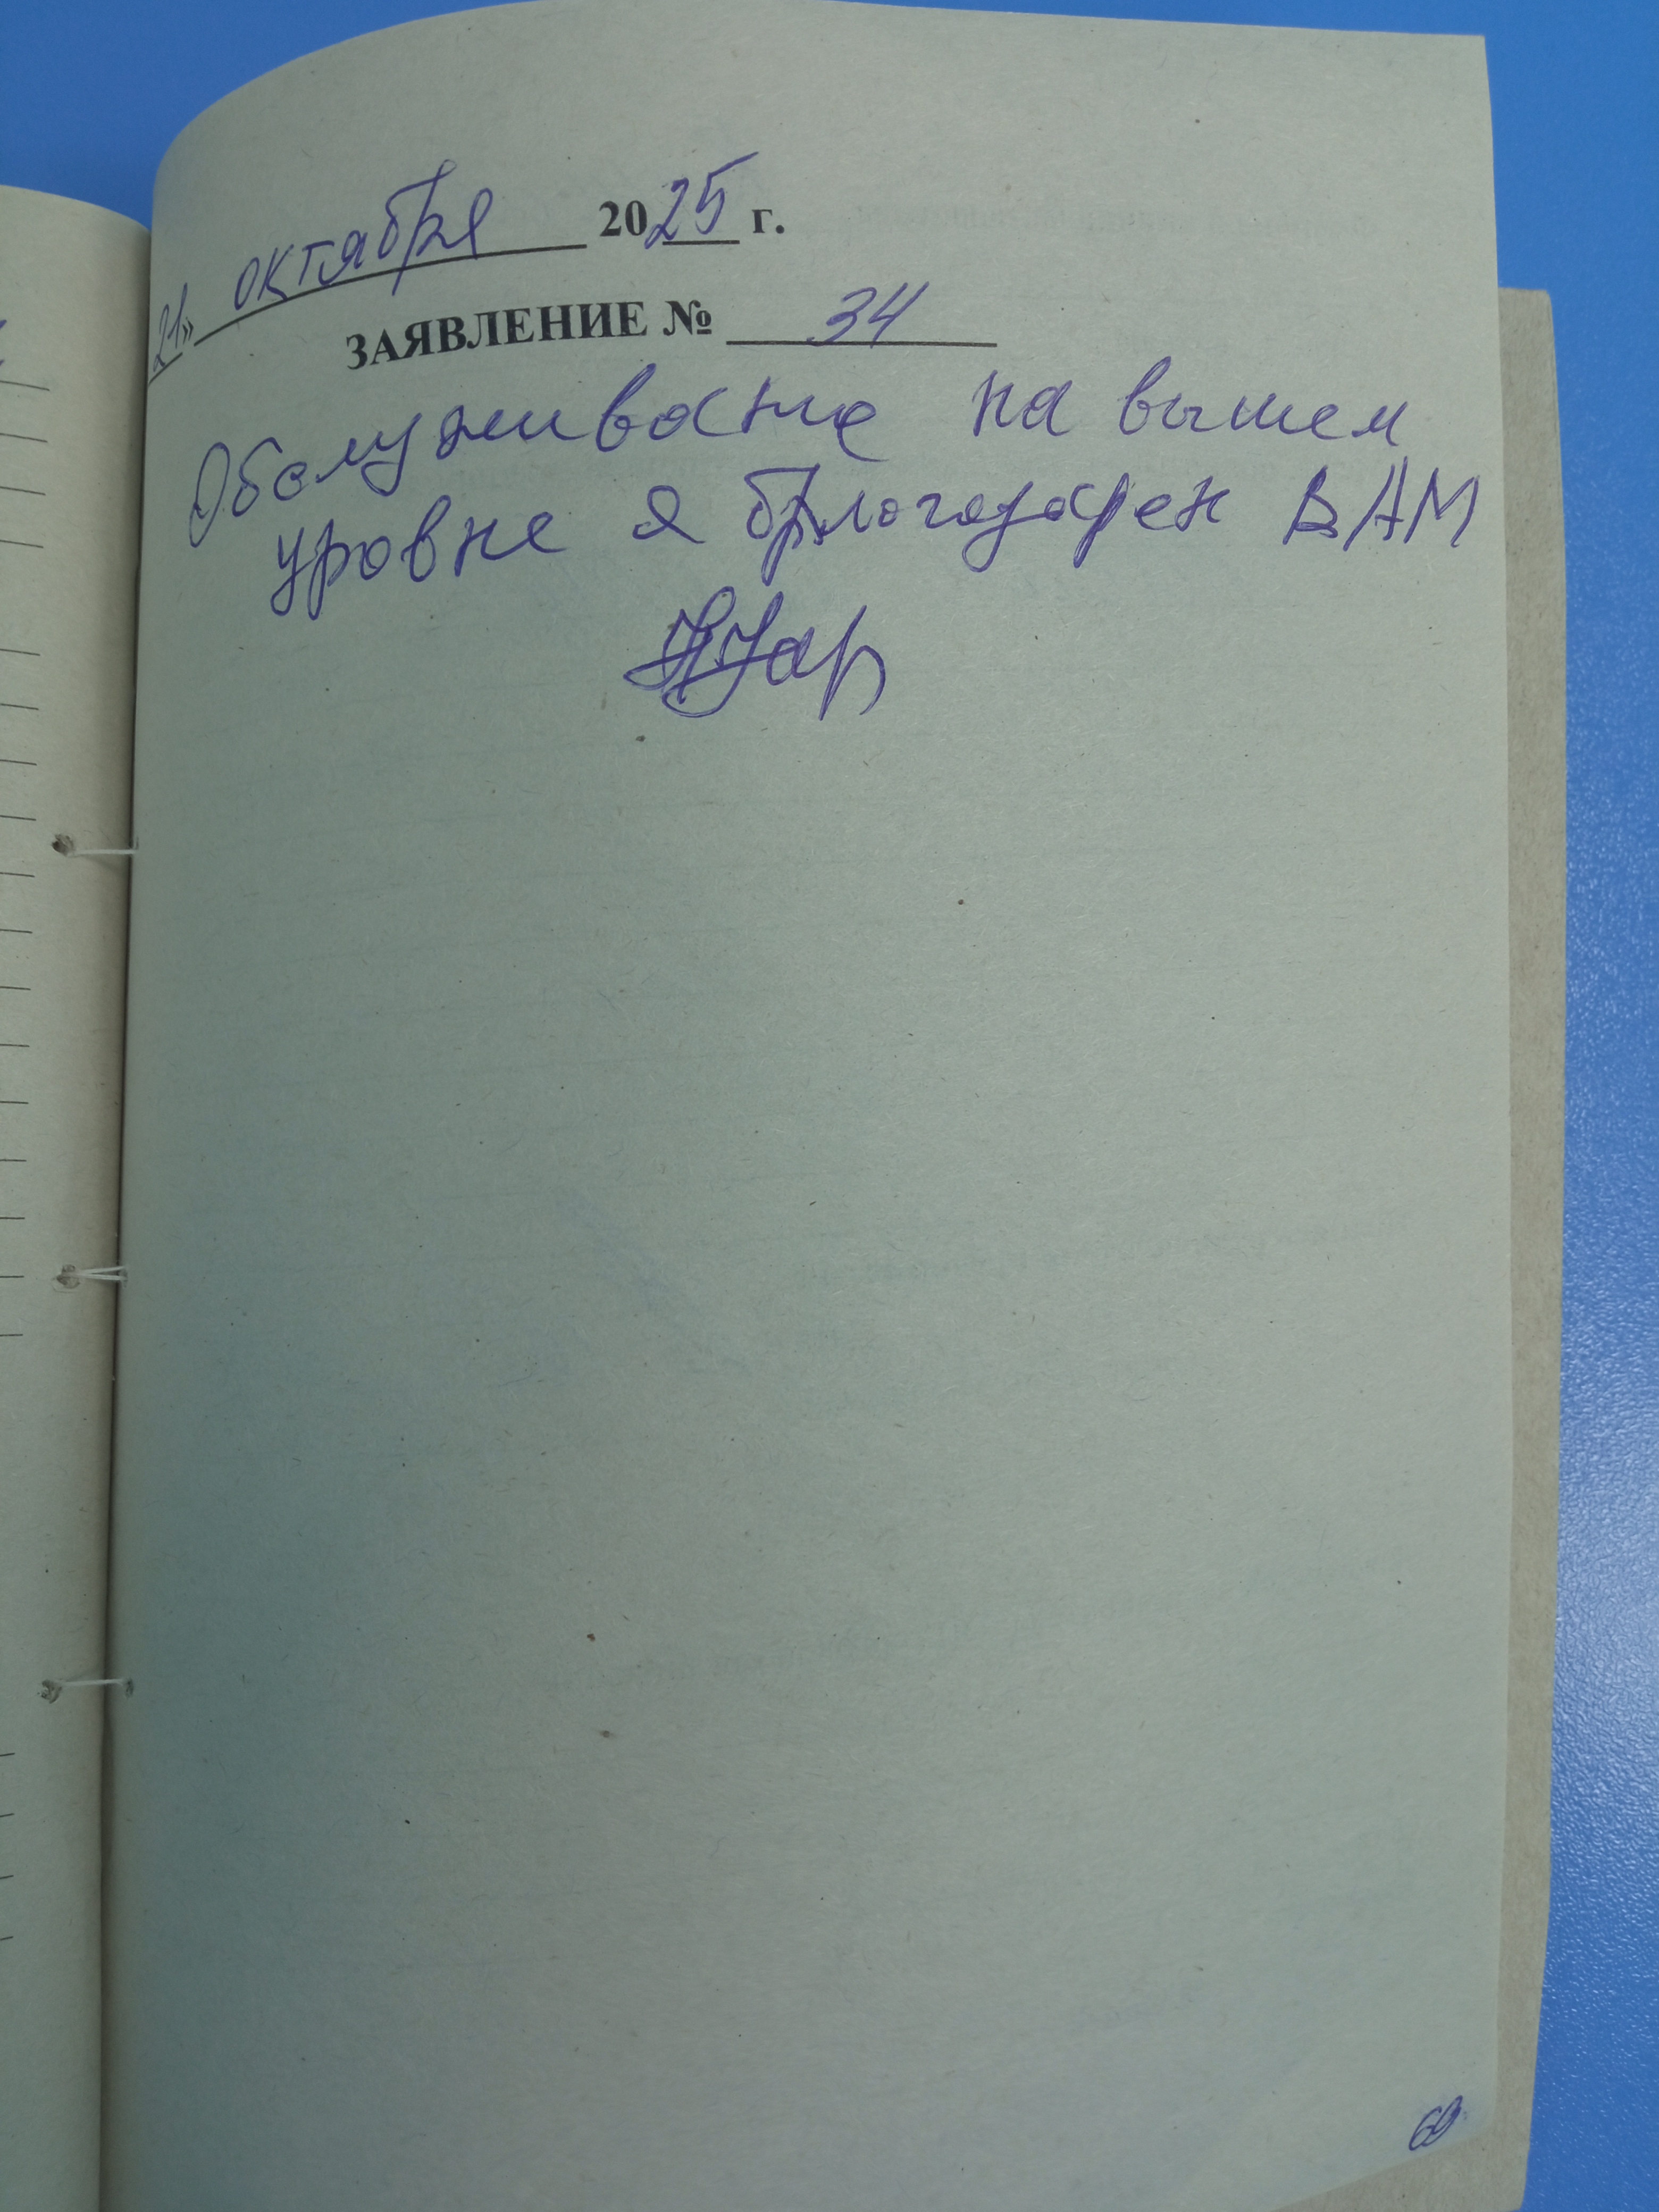 21» октября 2025 г.
ЗАЯВЛЕНИЕ № 34
Обслуживание на вышем
уровне я благодарен ВАМ